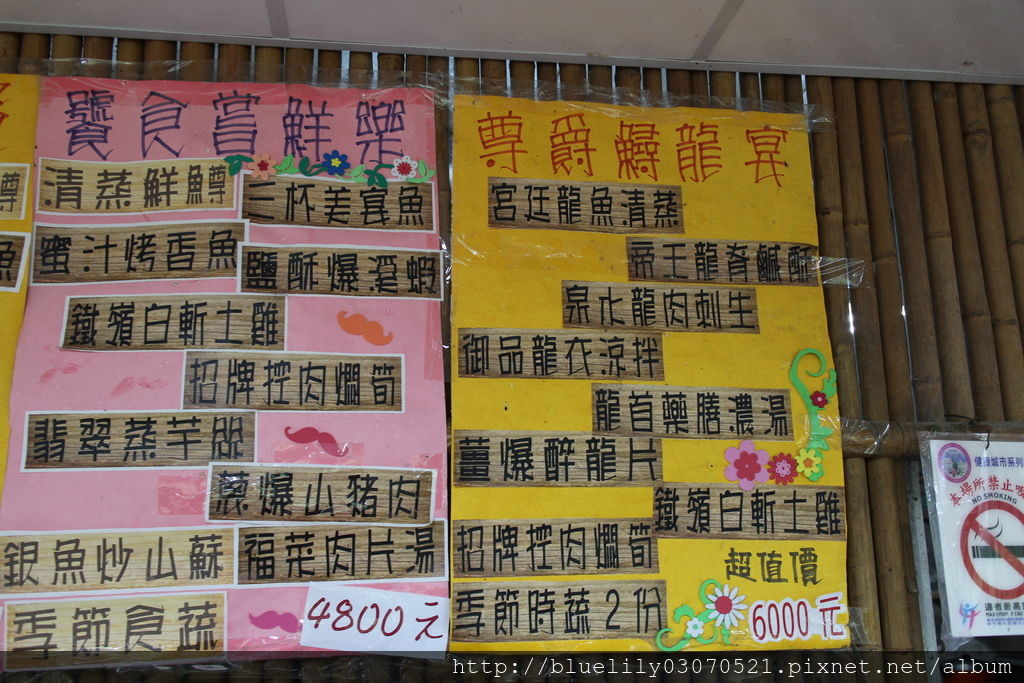 鱘
魚
饕食嘗鮮樂
清蒸鮮鱒
三杯美宴魚
蜜汁烤香魚
鹽酥爆溪蝦
鐵嶺白斬土雞
招牌控肉爛筍
翡翠蒸芋
蔥爆山豬肉
銀魚炒山蘇
福菜肉片湯
季節食蔬
4800元
尊爵鱘龍宴
宮廷龍魚清蒸
帝王龍脊鹹酥
泉水龍肉刺生
御品龍衣涼拌
龍首藥膳濃湯
薑爆醉龍片
鐵嶺白斬土雞
招牌控肉爛筍
超值價
季節時蔬2份
6000元
健康城市系列
本場所禁止吸
NO SMOKING
http://bluelily03070521.pixnet.net/album